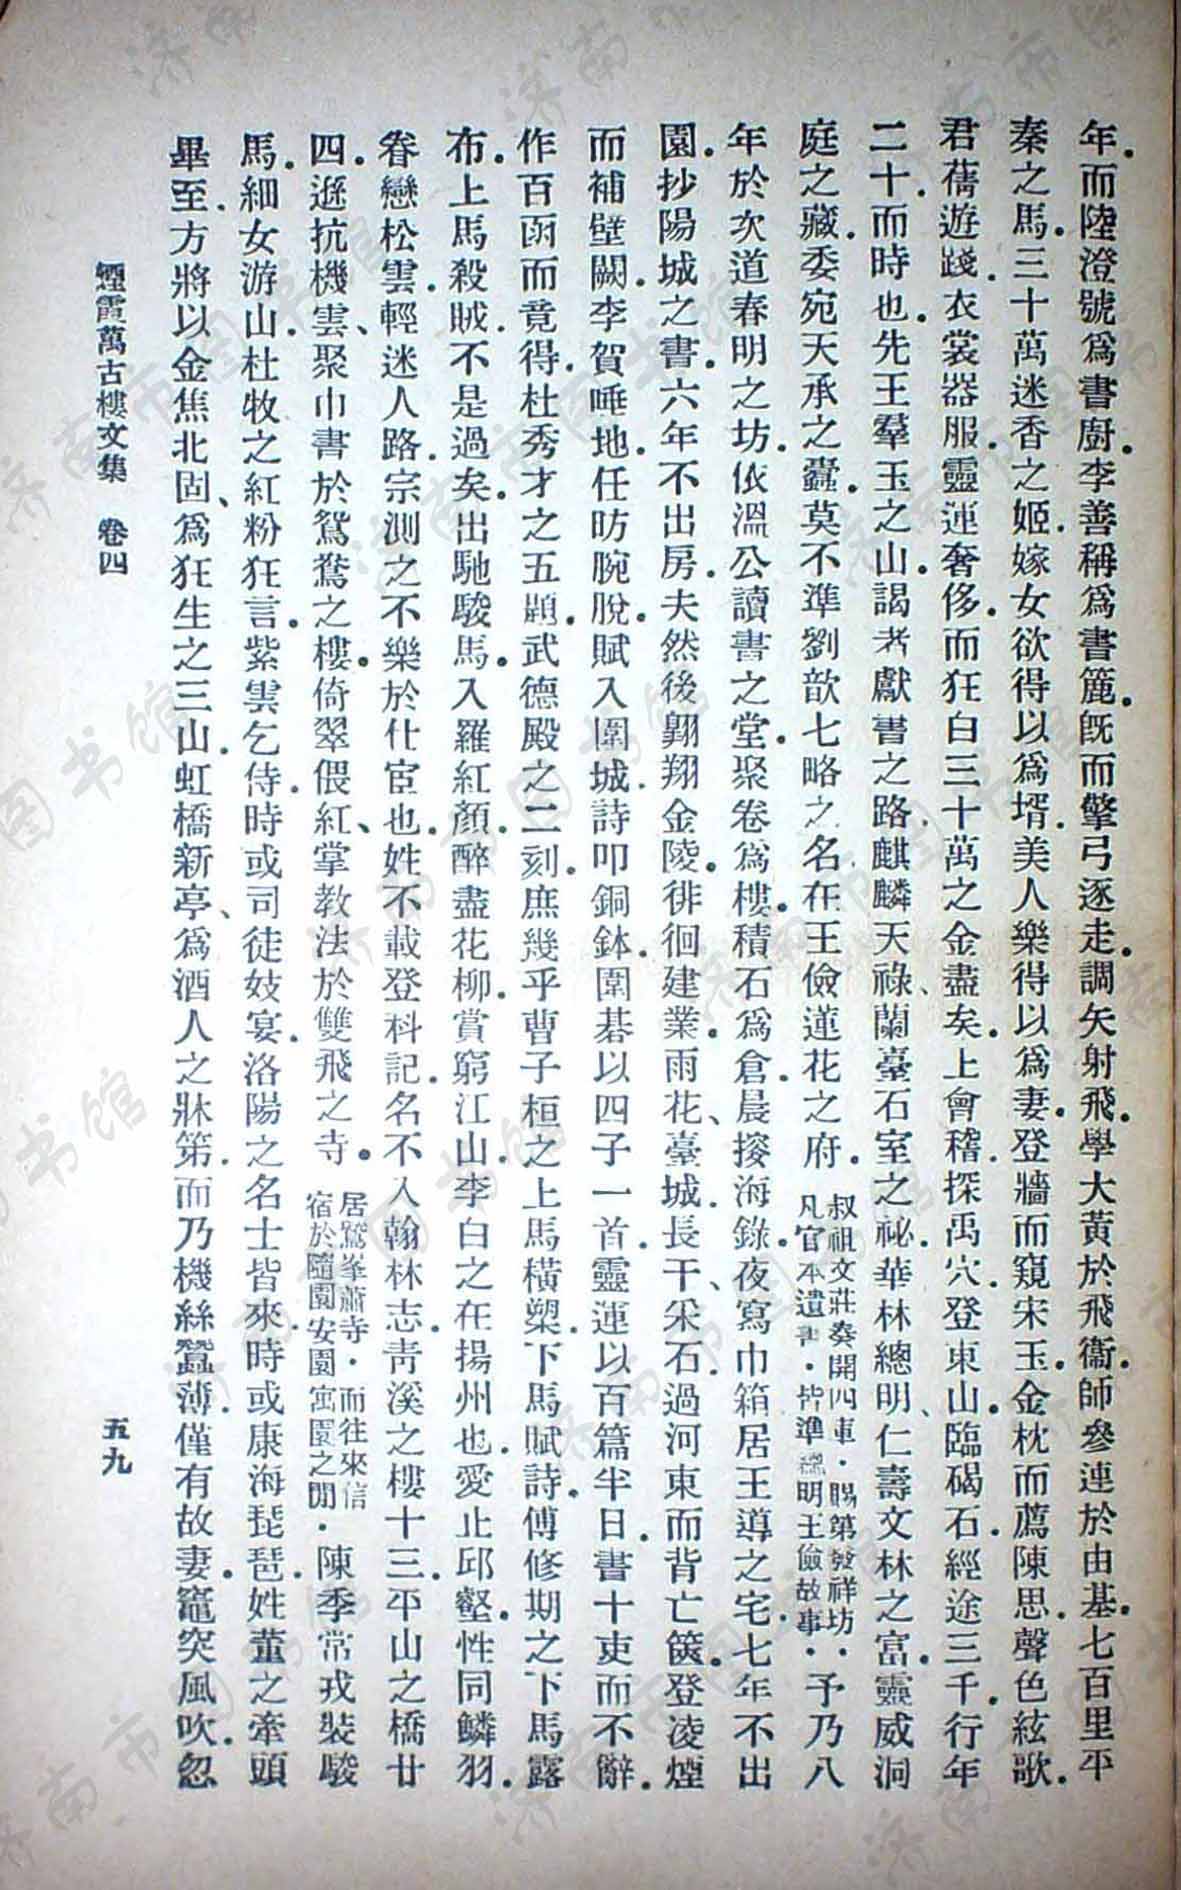 年．而陸澄號爲書廚．李善稱爲書簏．旣而擎弓逐走．調矢射飛．學大黃於飛衞．師參連於由基．七百里平
秦之馬．三十萬迷香之姬．嫁女欲得以爲壻．美人樂得以爲妻．登牆而窺宋玉．金枕而薦陳思．聲色絃歌．
君蒨遊踐．衣裳器服．靈運奢侈．而狂白三十萬之金盡矣．上會稽．探禹穴．登東山、臨碣石．經途三千．行年
二十．而時也．先王羣玉之山．謁考獻書之路．麒麟天祿、蘭臺石室之祕．華林總明、仁壽文林之富．靈威洞
庭之藏．委宛天承之蠹．莫不準劉歆七略之名．在王儉蓮花之府．叔祖文莊奏開四庫．賜第發祥坊．．
凡官本遺書．皆準總明王儉故事．予乃八
年於次道春明之坊．依溫公讀書之堂．聚卷爲樓．積石爲倉．晨搜海錄．夜寫巾箱．居王導之宅．七年不出
園．抄陽城之書．六年不出房．夫然後翺翔金陵．徘徊建業．雨花、臺城．長干、采石．過河東而背亡篋．登凌煙
而補壁闕．李賀唾地．任昉腕脫．賦入圍城．詩叩銅鉢．圍碁以四子一首．靈運以百篇半日．書十吏而不辭．
作百函而竟得．杜秀才之五題．武德殿之二刻．庶幾乎曹子桓之上馬橫槊．下馬賦詩．傅修期之下馬露
布．上馬殺賊．不是過矣．出馳駿馬．入羅紅顏．醉盡花柳．賞窮江山．李白之在揚州也．愛止邱壑．性同鱗羽．
眷戀松雲．輕迷人路．宗測之不樂於仕宦也．姓不載登科記．名不入翰林志．靑溪之樓十三．平山之橋廿
四．遜抗機雲、聚巾書於鴛鴦之樓．倚翠偎紅、掌教法於雙飛之寺．居鷲峯蕭寺．而往來信
宿於隨園安園寓園之閒．陳季常戎裝駿
馬．細女游山．杜牧之紅粉狂言．紫雲乞侍．時或司徒妓宴．洛陽之名士皆來．時或康海琵琶．姓董之牽頭
畢至．方將以金焦北固、爲狂生之三山．虹橋新亭、爲酒人之牀第．而乃機絲蠶薄．僅有故妻．竈突風吹．忽
煙霞萬古樓文集　卷四
五九